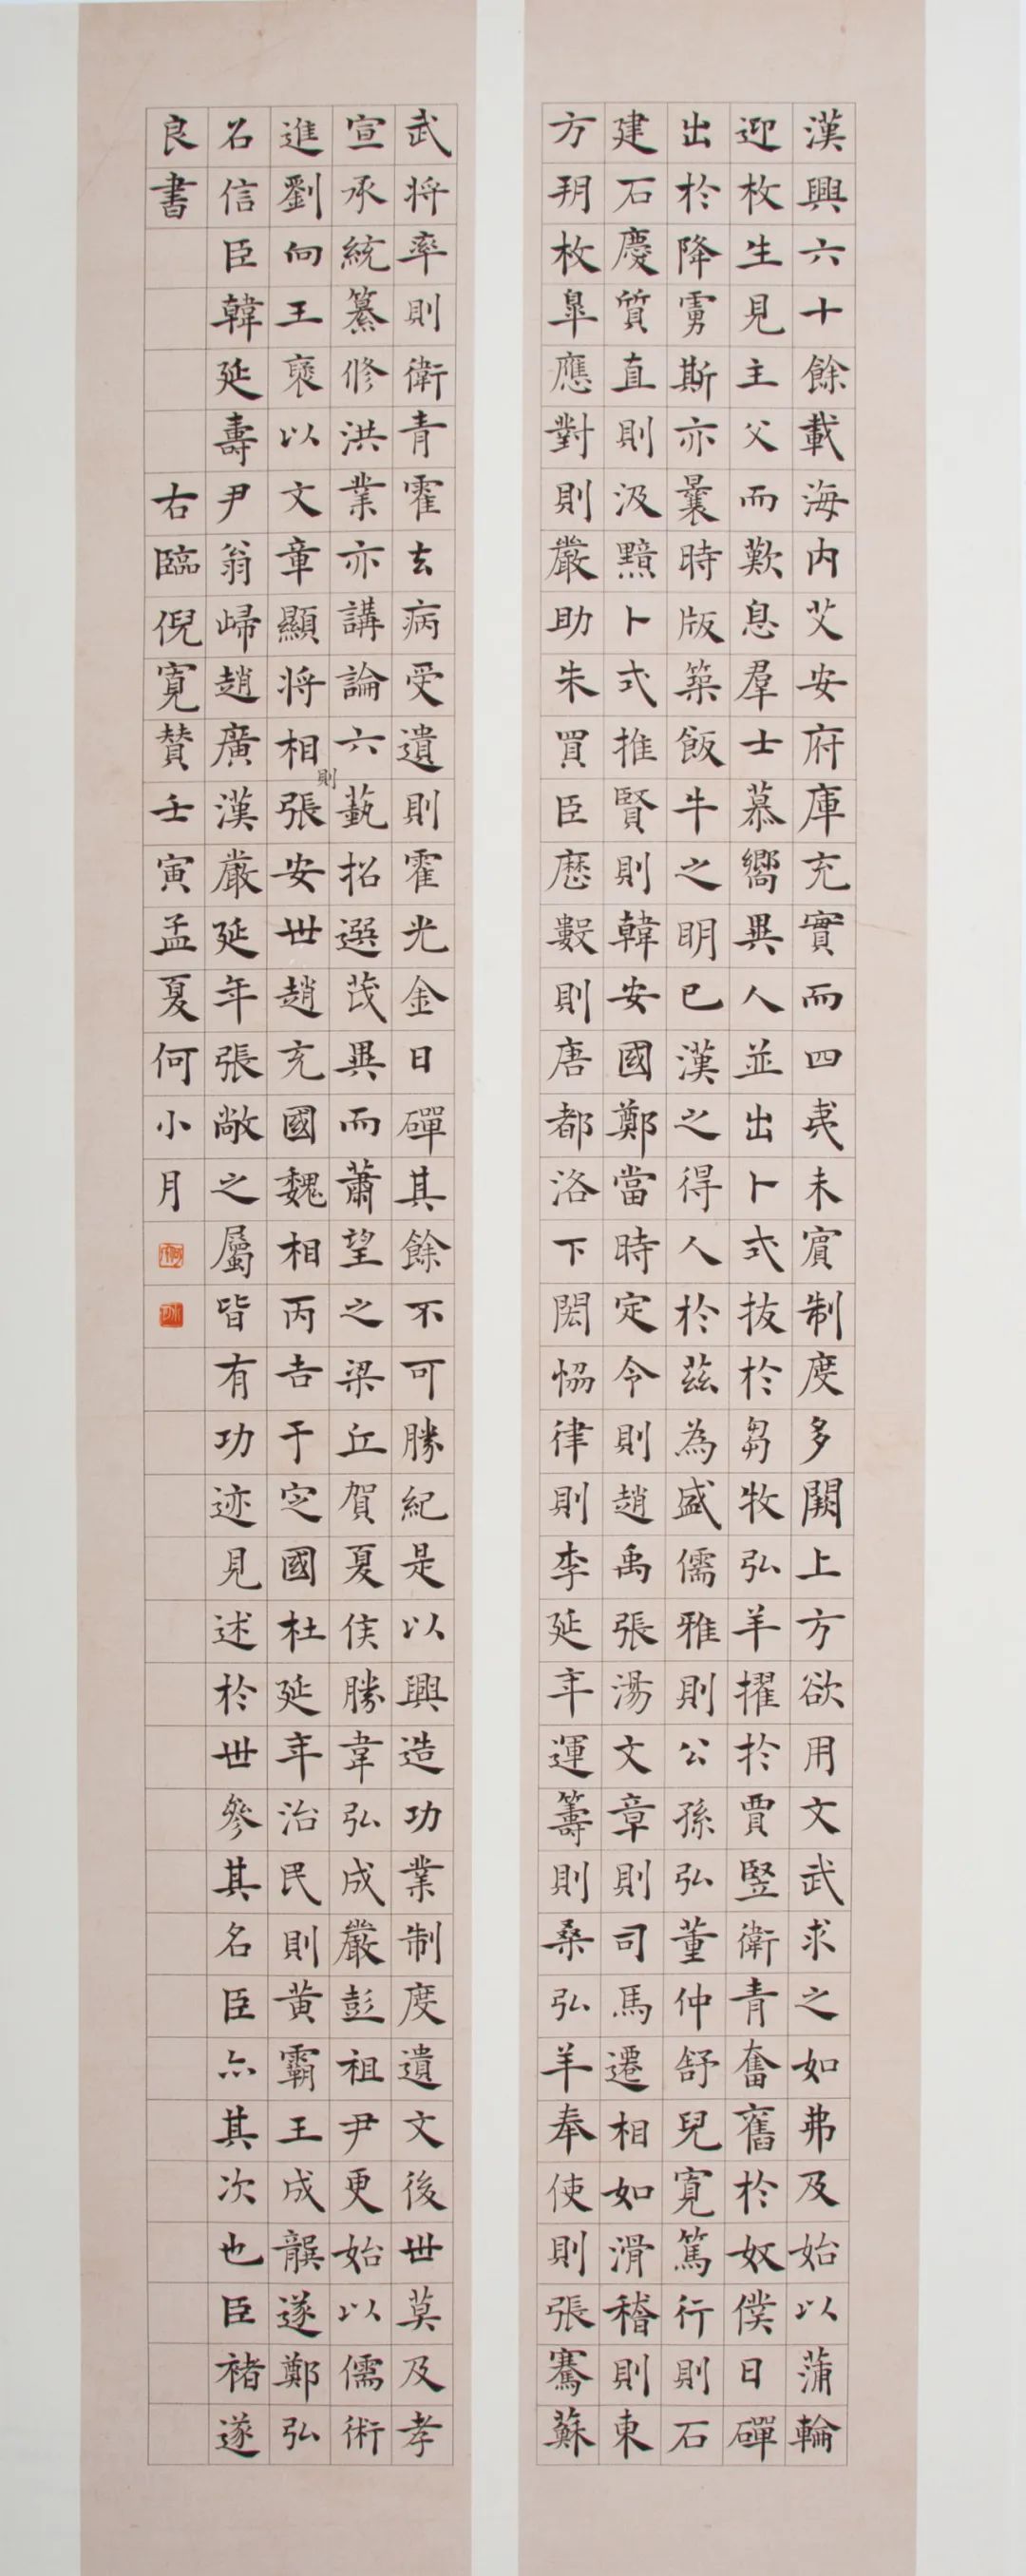 漢興六十餘載海内艾安府庫充實而四夷未賓制度多闕上方欲用文武求之如弗及始以蒲輪
迎枚生見主父而歎息羣士慕嚮異人並出卜式拔於芻牧弘羊擢於賈豎衛青奮舊於奴僕日磾
出於降虜斯亦曩時版築飯牛之明已漢之得人於茲為盛儒雅則公孫弘董仲舒兒寬篤行則石
建石慶質直則汲黯卜式推賢則韓安國鄭當時定令則趙禹張湯文章則司馬遷相如滑稽則東
方朔枚皐應對則嚴助朱買臣歷數則唐都洛下閎協律則李延年運籌則桑弘羊奉使則張騫蘇
武將率則衛青霍去病受遺則霍光金日磾其餘不可勝紀是以興造功業制度遺文後世莫及孝
宣承統纂修洪業亦講論六藝招選茂異而蕭望之梁丘賀夏侯勝韋弘成嚴彭祖尹更始以儒術
進劉向王褒以文章顯將相則張安世趙充國魏相丙吉于定國杜延年治民則黄霸王成龔遂鄭弘
召信臣韓延壽尹翁歸趙廣漢嚴延年張敞之屬皆有功迹見述於世參其名臣亦其次也臣褚遂
良書 右臨倪寬贊壬寅孟夏何小月